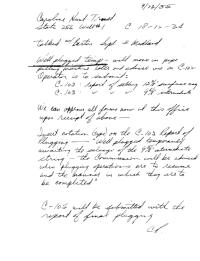 9/22/55
Caroline Hunt Trust
State 252 Well #1 C 18-12-34
Talked - Carter Sept & Midland
Well plugged temp - will move in pipe
pulling machine later and advise us in C-102
Operator is to submit:
C-103: report of setting 13⅜" surface csg
C-103 " " " 9⅝" intermediate
We can approve all forms now at this office
upon receipt of above -
Insert notation type on the C-103 Report of
Plugging -- "Well plugged temporarily
awaiting the salvage of the 9⅝" intermediate
string - the Commission will be advised
when plugging operations are to resume
and the manner in which they are to
be completed"
C-105 will be submitted with the
report of final plugging